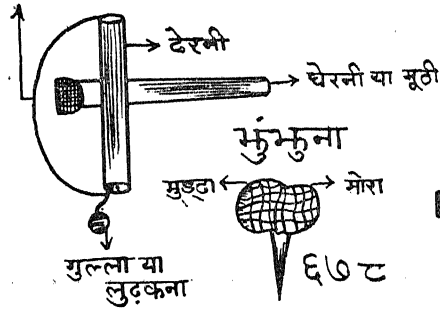 ढेरनी
घेरनी या मूठी
झुंझुना
मुड्ढा
मोरा
गुल्ला या
लुढ़कना
६७८